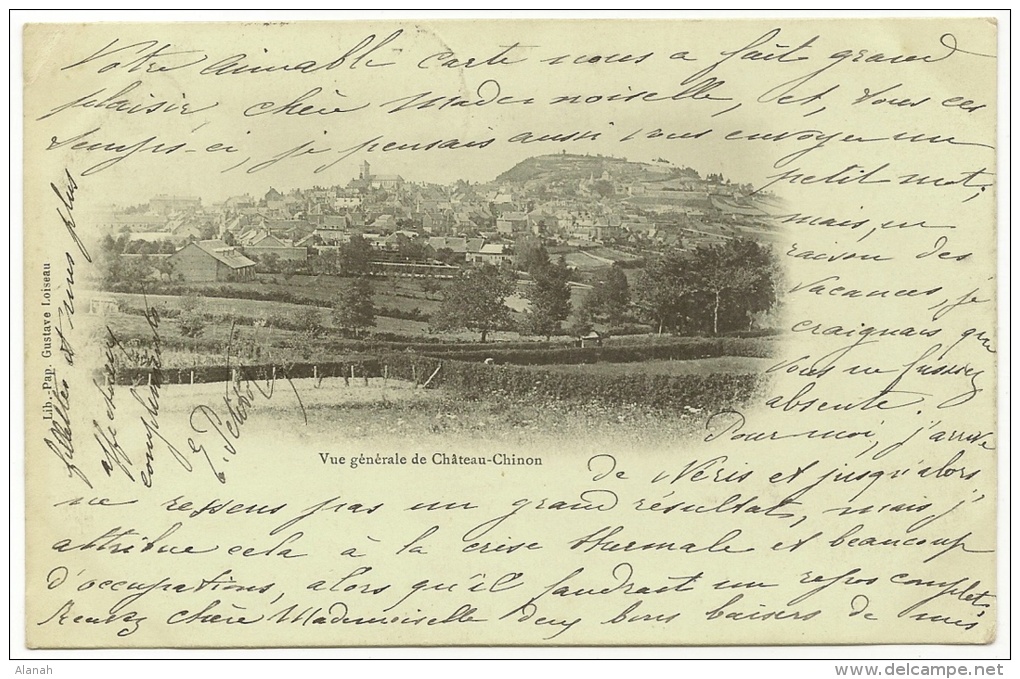 Votre aimable carte nous a fait grand
plaisir, chère Mademoiselle, et, tous ces
temps-ci, je pensais aussi vous envoyer un
petit mot,
mais, en
raison des
vacances, je
craignais que
vous ne fussiez
absente.
Pour moi, j'arrive
de Néris et jusqu'alors
ne ressens pas un grand résultat, mais j'
attribue cela à la crise thermale et beaucoup
d'occupations, alors qu'il faudrait un repos complet.
Recevez chère Mademoiselle deux bons baisers de mes
fillettes et mes plus
affectueux
compliments
Vue générale de Château-Chinon
Lib.-Pap. Gustave Loiseau
Alanah
www.delcampe.net